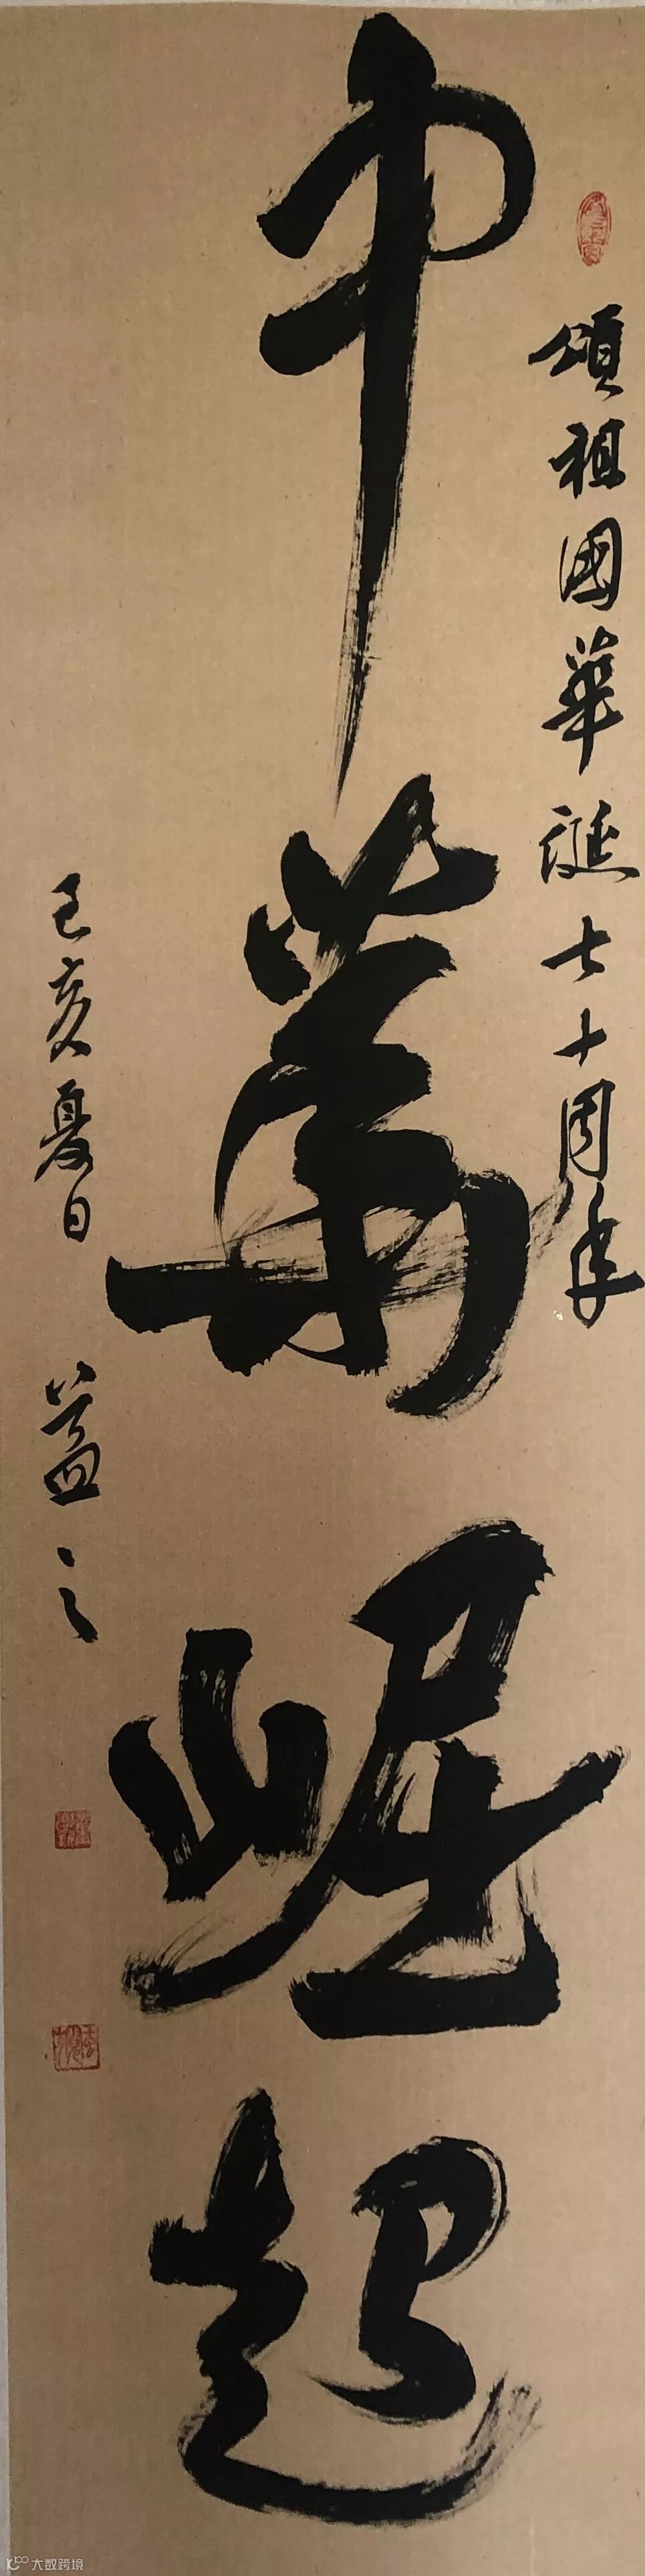 頌祖國華誕七十周年
中華崛起
己亥夏日 蓋之
大数跨境